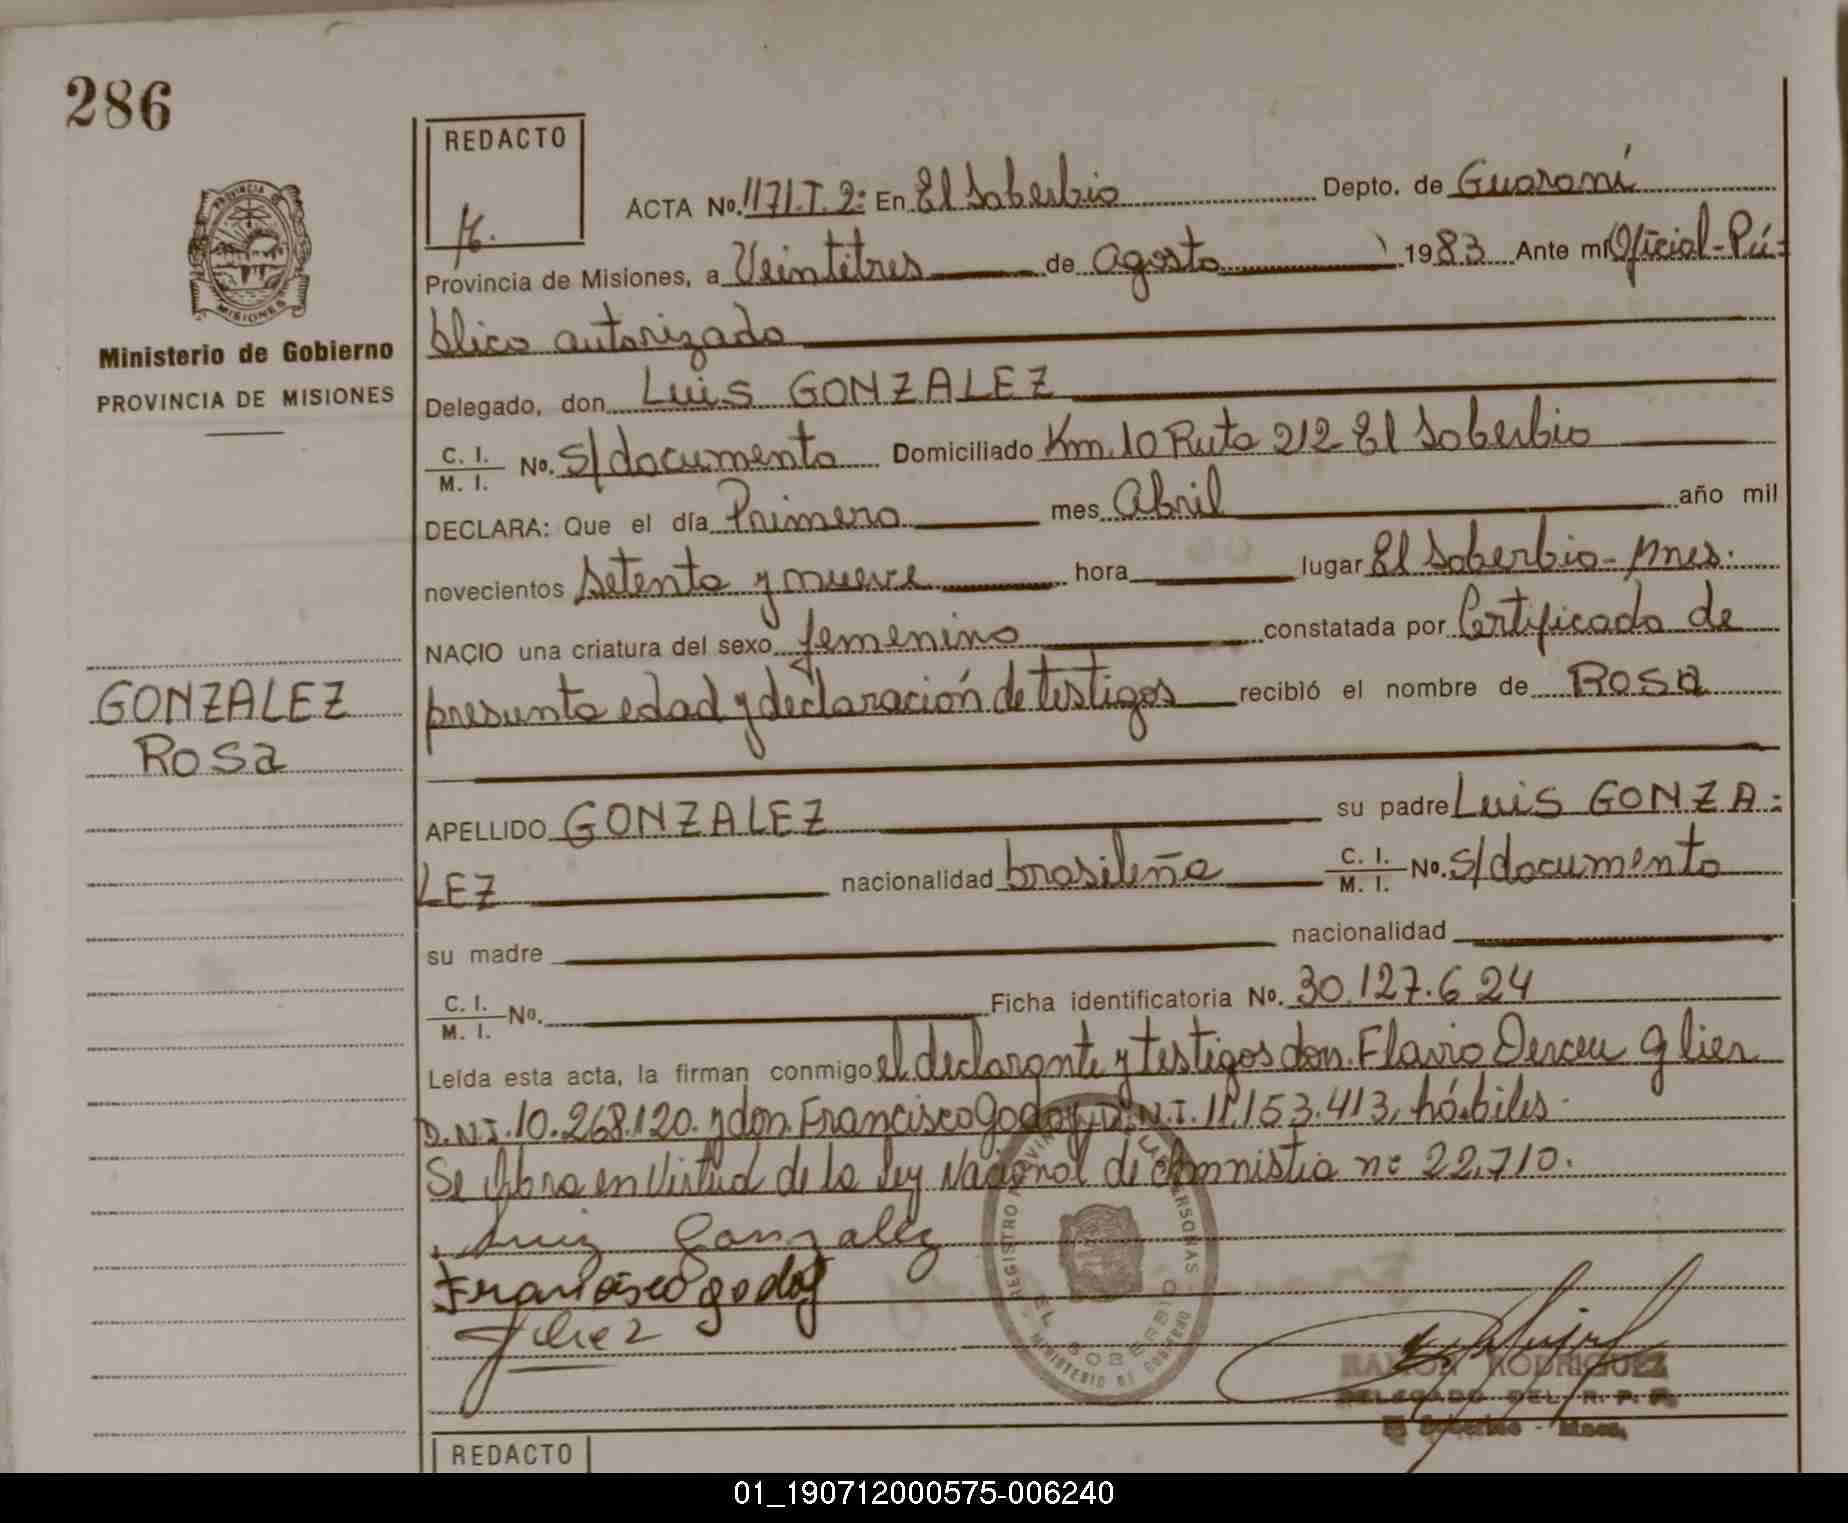 286
REDACTO
H.
PROVINCIA DE
MISIONES
Ministerio de Gobierno
PROVINCIA DE MISIONES
ACTA No. 1171.T.2: En El Soberbio Depto. de Guaraní
Provincia de Misiones, a Veintitres de agosto 1983 Ante mí Oficial-Pú-
blico autorizado
Delegado, don Luis GONZALEZ
C. I. / M. I. No. s/documento Domiciliado Km. 10 Ruta 212 El Soberbio
DECLARA: Que el día Primero mes abril año mil
novecientos setenta y nueve hora lugar El Soberbio-Mnes.
NACIO una criatura del sexo femenino constatada por Certificado de
presunta edad y declaración de testigos recibió el nombre de Rosa
GONZALEZ
Rosa
APELLIDO GONZALEZ su padre Luis GONZA-
LEZ nacionalidad brasileña C. I. / M. I. No. s/documento
su madre nacionalidad
C. I. / M. I. No. Ficha identificatoria No. 30.127.624
Leída esta acta, la firman conmigo el declarante y testigos don Flavio Derceu Glier
D.N.I. 10.268.120. y don Francisco Godoy, D.N.I. 11.153.413, hábiles.
Se labra en Virtud de la Ley Nacional de amnistia nº 22.710.
Luiz Gonzalez
Francisco godoy
REGISTRO PROVINCIAL DE LAS PERSONAS
EL SOBERBIO
MINISTERIO DE GOBIERNO
RAMON RODRIGUEZ
DELEGADO DEL R. P. P.
El Soberbio - Mnes.
REDACTO
01_190712000575-006240